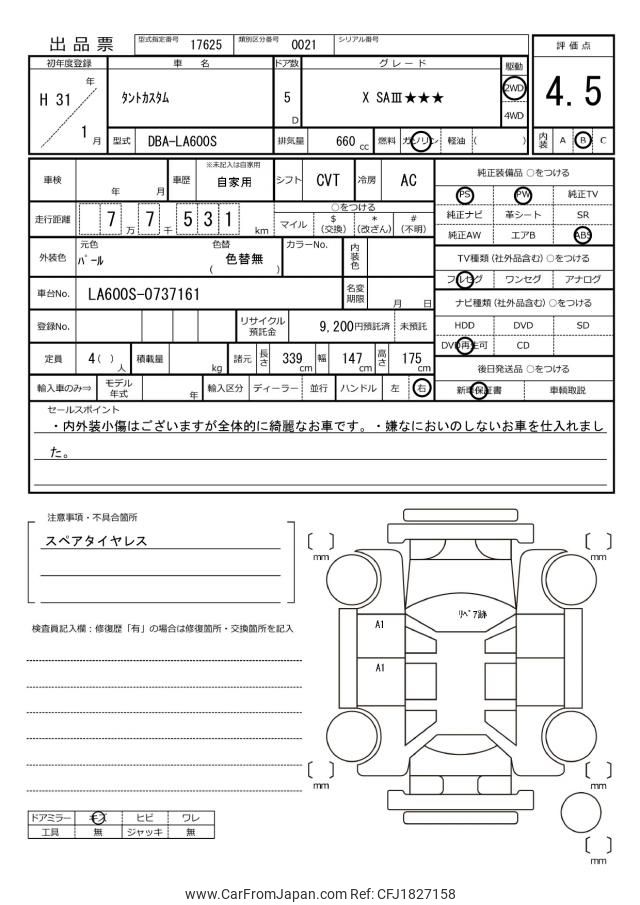 出品票 型式指定番号 17625 類別区分番号 0021 シリアル番号
評価点
4.5
内装 A B C
初年度登録 車名 ドア数 グレード 駆動
H 31 年 1 月
タントカスタム 5 D X SAⅢ★★★ 2WD
4WD
型式 DBA-LA600S 排気量 660 cc 燃料 ガソリン 軽油 ( )
車検 年 月 車歴 ※未記入は自家用 自家用 シフト CVT 冷房 AC
純正装備品 ○をつける
PS PW 純正TV
純正ナビ 革シート SR
純正AW エアB ABS
走行距離 7 万 7 千 5 3 1 km
○をつける
マイル $(交換) *(改ざん) #(不明)
外装色 元色 パール 色替 ( 色替無 ) カラーNo. 内装色
TV種類(社外品含む) ○をつける
フルセグ ワンセグ アナログ
車台No. LA600S-0737161 名変期限 月 日
ナビ種類(社外品含む) ○をつける
HDD DVD SD
DVD再生可 CD
登録No. リサイクル預託金 9,200円預託済 未預託
定員 4 ( ) 人 積載量 kg 諸元 長さ 339 cm 幅 147 cm 高さ 175 cm
後日発送品 ○をつける
新車保証書 車輌取説
輸入車のみ⇒ モデル年式 年 輸入区分 ディーラー 並行 ハンドル 左 右
セールスポイント
・内外装小傷はございますが全体的に綺麗なお車です。・嫌なにおいのしないお車を仕入れまし
た。
注意事項・不具合箇所
スペアタイヤレス
検査員記入欄：修復歴「有」の場合は修復箇所・交換箇所を記入
mm
mm
リペア跡
A1
A1
mm
mm
mm
ドアミラー キズ ヒビ ワレ
工具 無 ジャッキ 無
www.CarFromJapan.com Ref: CFJ1827158